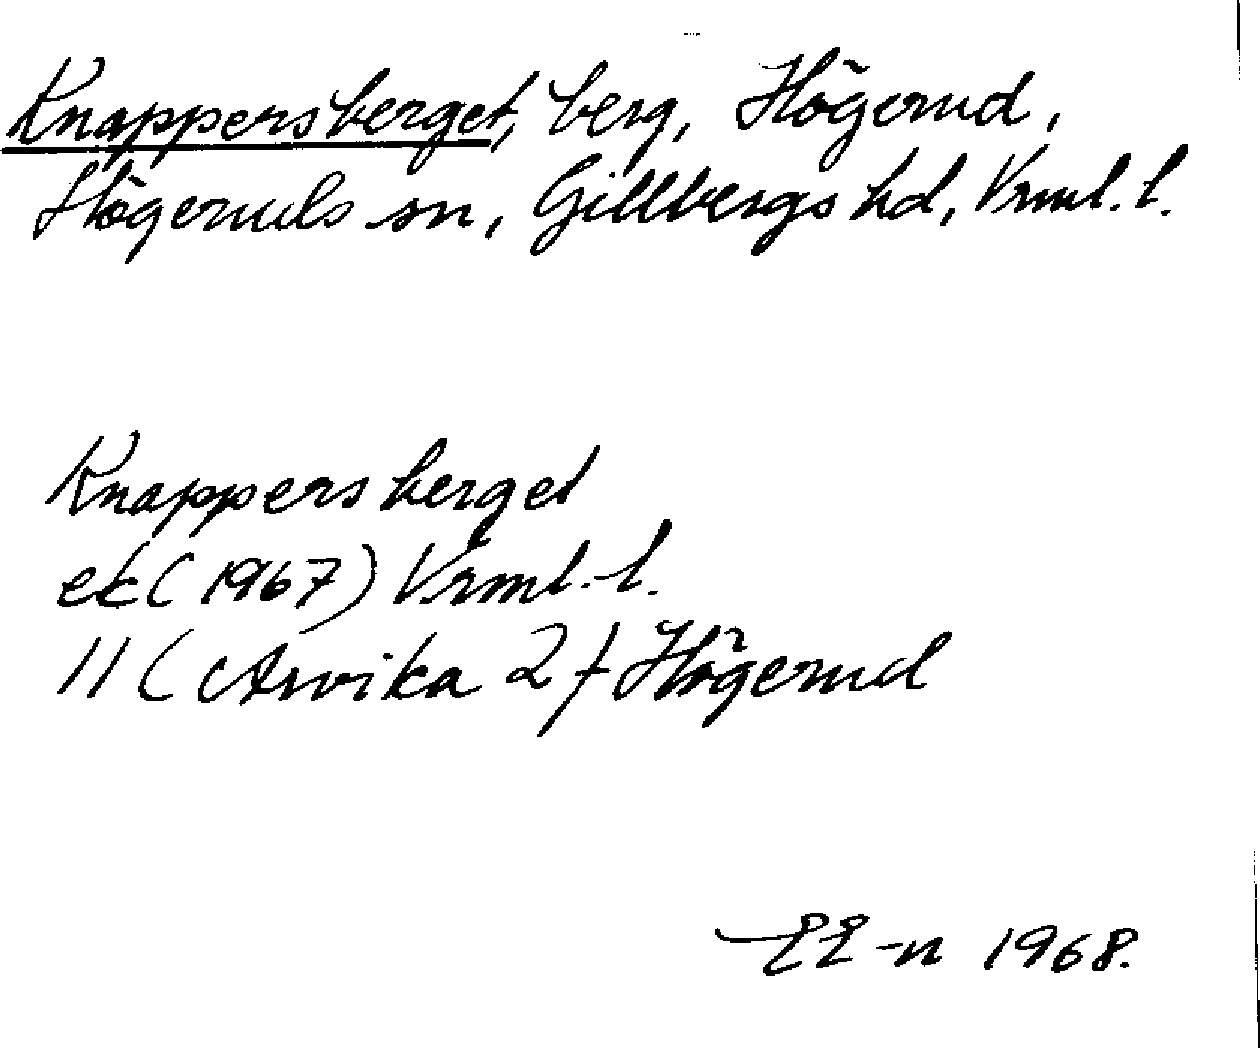 Knappersberget, berg, Högerud,
Högeruds sn, Gillbergs hd, Vrml. l.
Knappersberget
ek (1967) Vrml. l.
11 (Arvika 2) Högerud
EE-n 1968.